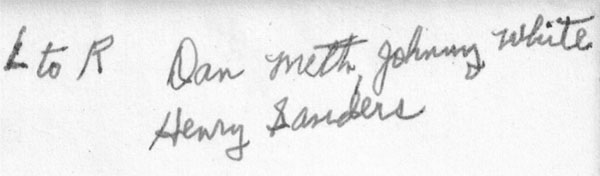 L to R Dan Meth, Johnny White
Henry Sanders